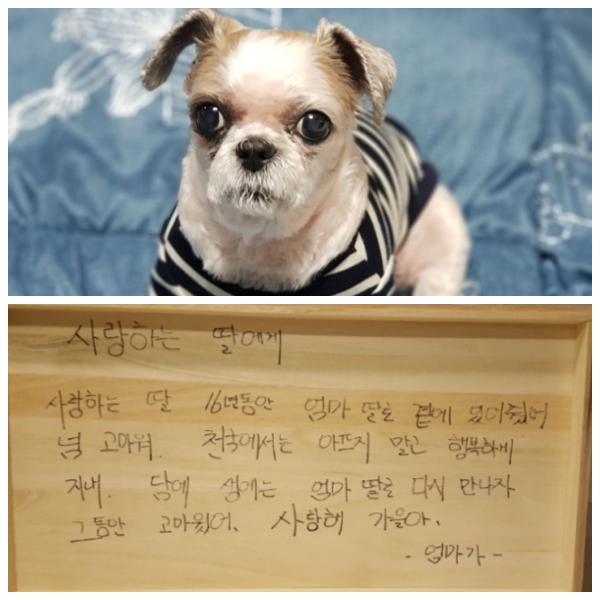 사랑하는 딸에게
사랑하는 딸 16년동안 엄마 딸로 곁에 있어줬어
넘 고마워. 천국에서는 아프지 말고 행복하게
지내. 담에 생에는 엄마 딸로 다시 만나자
그동안 고마웠어. 사랑해 가을아.
- 엄마가 -